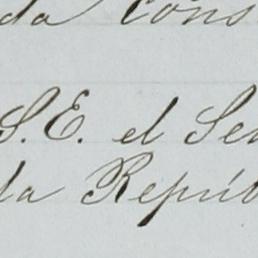 da cons
S.E. el Sen
la Repúb